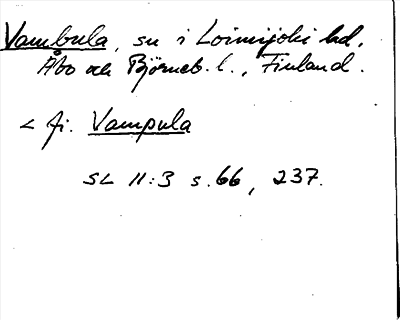 Vambula, sn i Loimijoki hd,
Åbo och Björneb. l., Finland.
< fi. Vampula
SL 11:3 s. 66, 237.